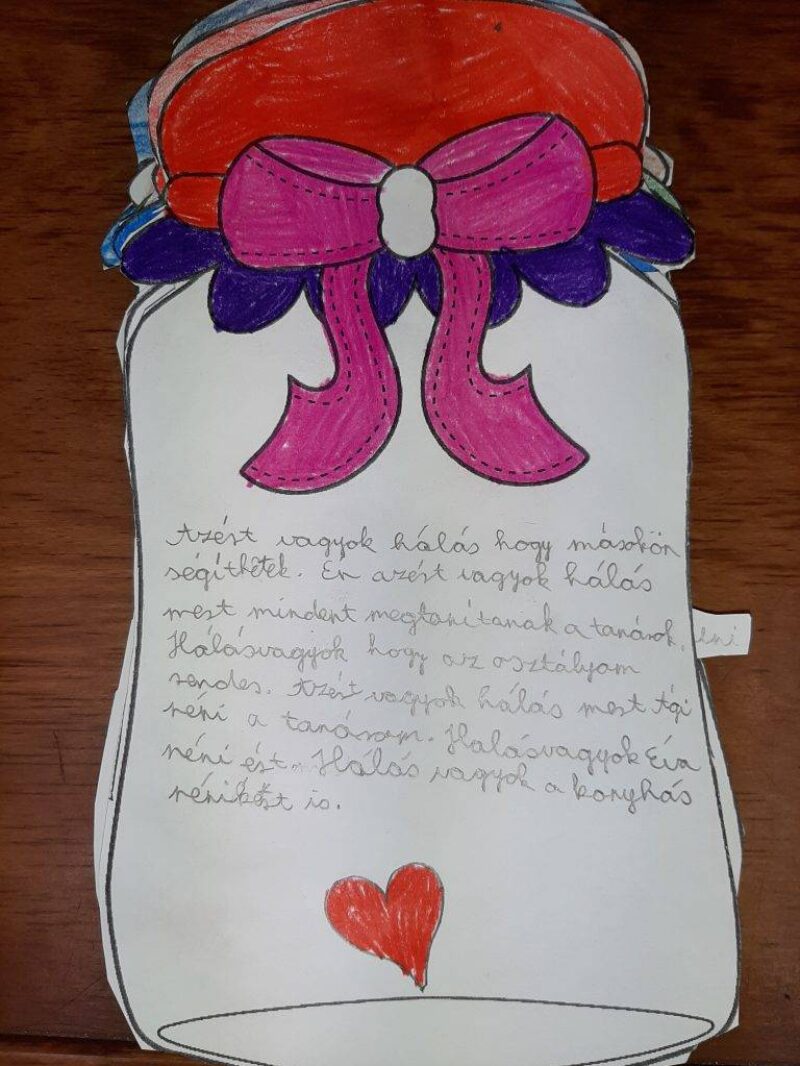 Azért vagyok hálás hogy másokon
ségíthetek. Én azért vagyok hálás
mert mindent megtanítanak a tanárok.
Hálásvagyok hogy az osztályom
rendes. Azért vagyok hálás mert Ági
néni a tanárom. Halásvagyok Éva
néni ért. Hálás vagyok a konyhás
nénikért is.